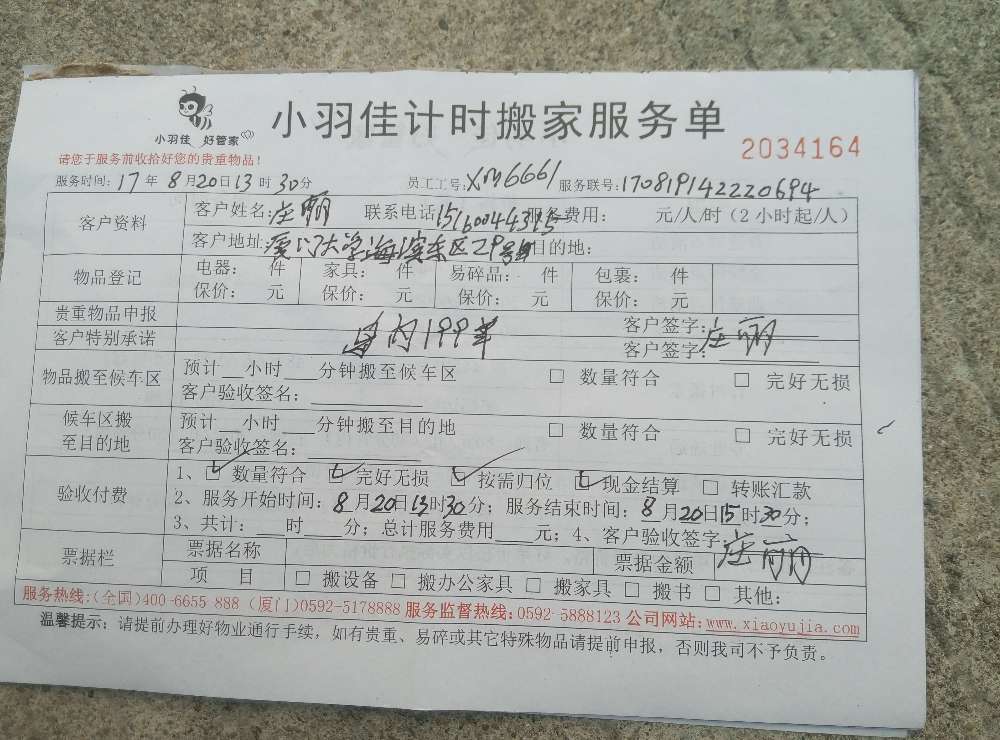 小羽佳 好管家
小羽佳计时搬家服务单
2034164
请您于服务前收拾好您的贵重物品！
服务时间：17年8月20日13时30分 员工工号：XM6661 服务联号：170819142220694
客户资料 客户姓名：庄丽 联系电话15160044315 服务费用： 元/人/时（2小时起/人）
客户地址：厦门大学海滨东区29号 目的地：
物品登记 电器： 件 家具： 件 易碎品： 件 包裹： 件
保价： 元 保价： 元 保价： 元 保价： 元
贵重物品申报 客户签字：
客户特别承诺 岛内199 客户签字：庄丽
物品搬至候车区 预计__小时___分钟搬至候车区 □ 数量符合 □ 完好无损
客户验收签名：
候车区搬至目的地 预计__小时___分钟搬至目的地 □ 数量符合 □ 完好无损
客户验收签名：
验收付费 1、☑ 数量符合 ☑ 完好无损 ☑ 按需归位 ☑ 现金结算 □ 转账汇款
2、服务开始时间：8月20日13时30分；服务结束时间：8月20日15时30分；
3、共计：___时___分；总计服务费用___元；4、客户验收签字 庄丽
票据栏 票据名称 票据金额
项 目 □ 搬设备 □ 搬办公家具 □ 搬家具 □ 搬书 □ 其他：
服务热线：（全国）400-6655 888（厦门）0592-5178888 服务监督热线：0592-5888123 公司网站：www.xiaoyujia.com
温馨提示：请提前办理好物业通行手续，如有贵重、易碎或其它特殊物品请提前申报，否则我司不予负责。